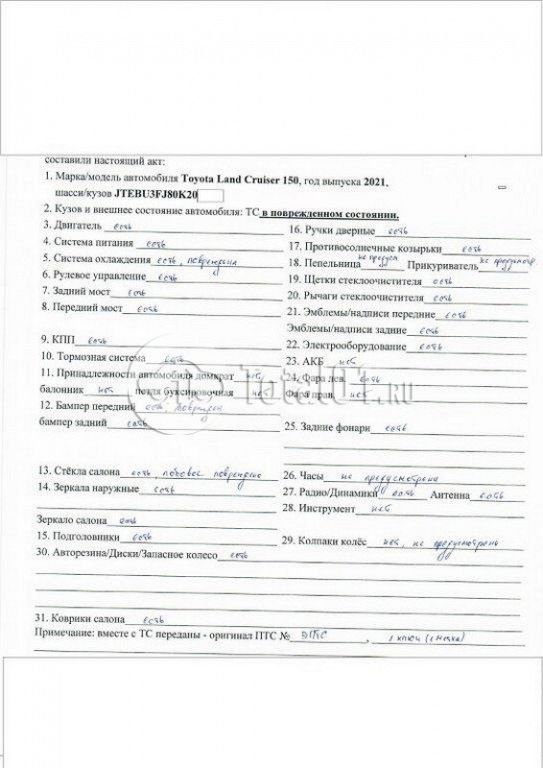 составили настоящий акт:
1. Марка/модель автомобиля Toyota Land Cruiser 150, год выпуска 2021,
шасси/кузов JTEBU3FJ80K20
2. Кузов и внешнее состояние автомобиля: ТС в поврежденном состоянии.
3. Двигатель есть
4. Система питания есть
5. Система охлаждения есть, повреждена
6. Рулевое управление есть
7. Задний мост есть
8. Передний мост есть
9. КПП есть
10. Тормозная система есть
11. Принадлежности автомобиля домкрат нет
балонник нет петля буксировочная нет
12. Бампер передний есть поврежден
бампер задний есть
13. Стёкла салона есть, лобовое повреждено
14. Зеркала наружные есть
Зеркало салона есть
15. Подголовники есть
16. Ручки дверные есть
17. Противосолнечные козырьки есть
18. Пепельница не предусм Прикуриватель не предусмотр
19. Щетки стеклоочистителя есть
20. Рычаги стеклоочистителя есть
21. Эмблемы/надписи передние есть
Эмблемы/надписи задние есть
22. Электрооборудование есть
23. АКБ нет
24. Фара лев. есть
Фара прав. нет
25. Задние фонари есть
26. Часы не предусмотрены
27. Радио/Динамики есть Антенна есть
28. Инструмент нет
29. Колпаки колёс нет, не предусмотрены
30. Авторезина/Диски/Запасное колесо есть
31. Коврики салона есть
Примечание: вместе с ТС переданы - оригинал ПТС № ЭПТС, 1 ключ (1 метка)
TOTAL01.RU